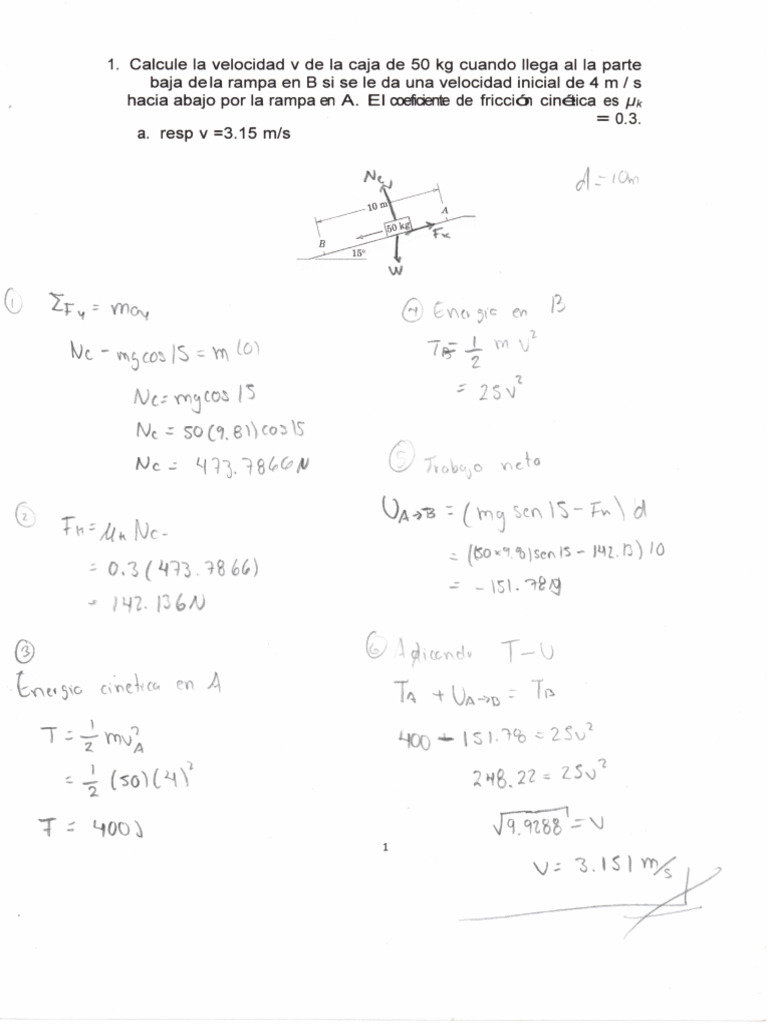 1. Calcule la velocidad v de la caja de 50 kg cuando llega al la parte
baja de la rampa en B si se le da una velocidad inicial de 4 m / s
hacia abajo por la rampa en A. El coeficiente de fricción cinética es μk
= 0.3.
a. resp v =3.15 m/s
d=10m
Nc
10 m
A
50 kg
Fk
B
15°
W
① ΣFy = may
Nc - mgcos15 = m(0)
Nc = mgcos15
Nc = 50(9.81)cos15
Nc = 473.7866N
② Fk = μk Nc
= 0.3(473.7866)
= 142.136N
③
Energia cinetica en A
T = 1/2 mv²A
= 1/2 (50)(4)²
T = 400J
④ Energia en B
TB = 1/2 m v²
= 25v²
⑤ Trabajo neto
UA→B = (mg sen15 - Fk) d
= ((50×9.81)sen15 - 142.13)10
= -151.78
⑥ Aplicando T-U
TA + UA→B = TB
400 - 151.78 = 25v²
248.22 = 25v²
√9.9288 = v
v = 3.151 m/s
1